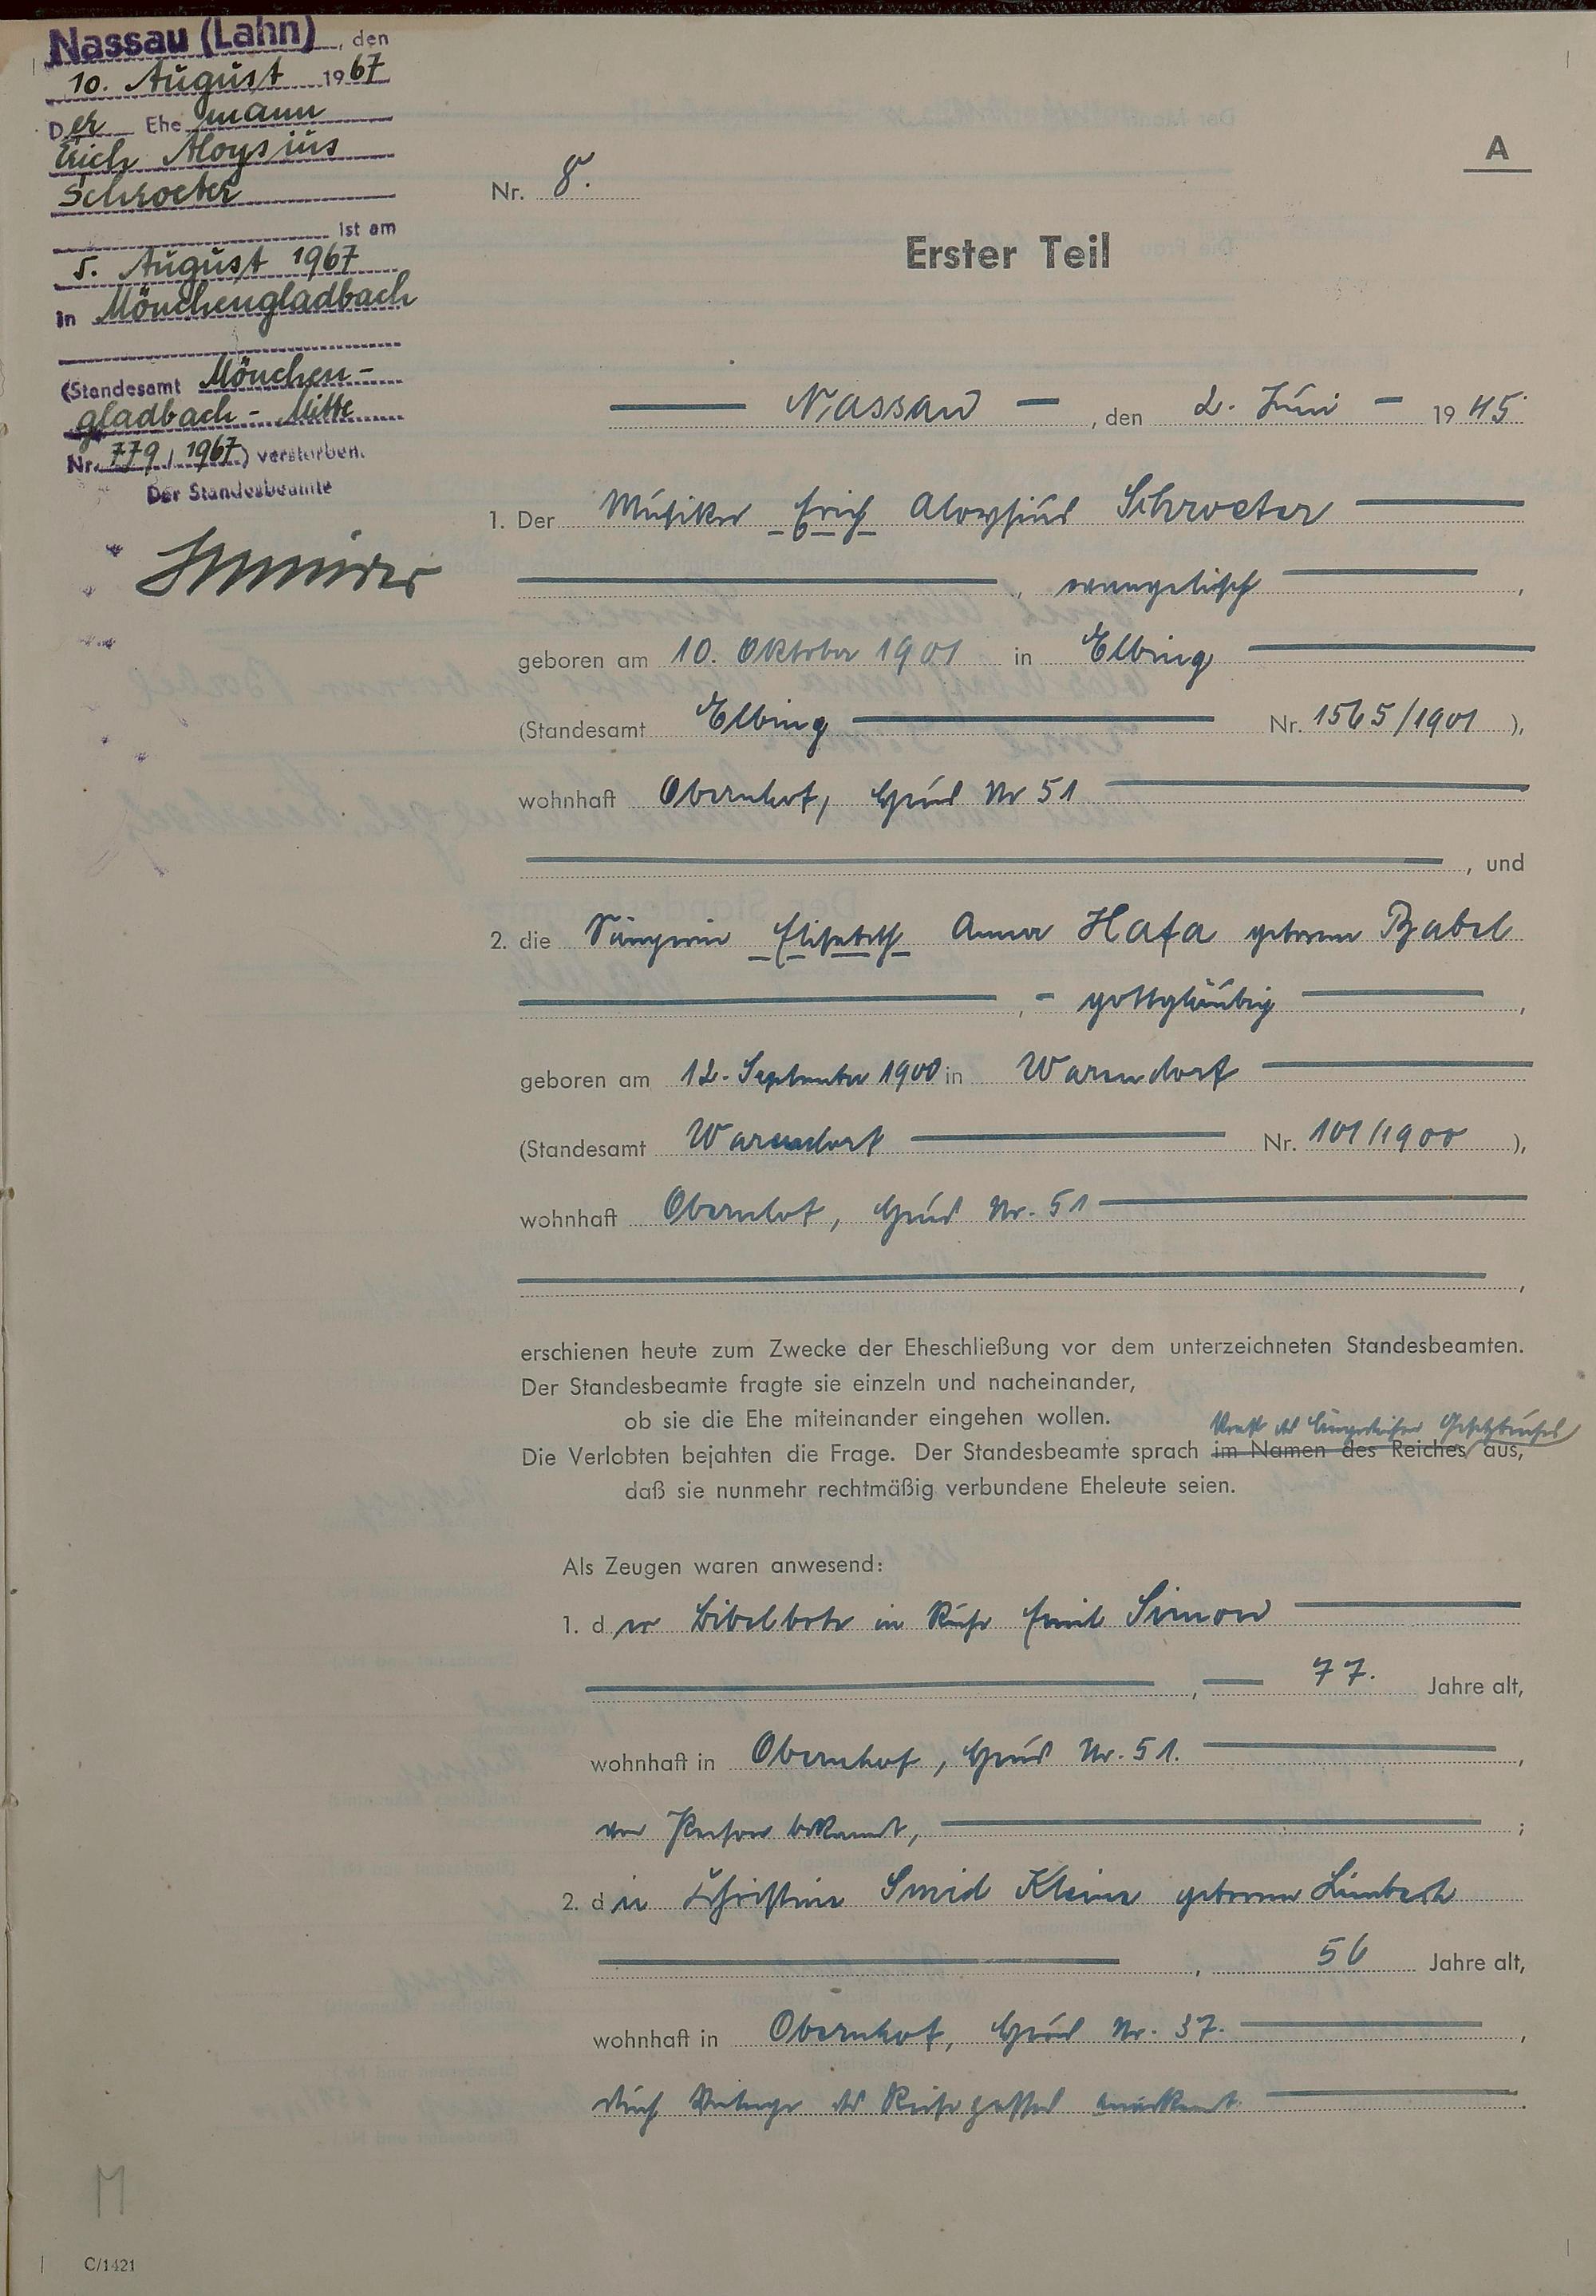 Nassau (Lahn), den
10. August 1967
Der Ehemann
Erich Aloysius
Schroeter
ist am
5. August 1967
in Mönchengladbach
(Standesamt Mönchen-
gladbach - Mitte
Nr. 779 / 1967) verstorben.
Der Standesbeamte
A
Nr. 8.
Erster Teil
Nassau, den 2. Juni 1945
1. Der Musiker Erich Aloysius Schroeter
, evangelisch,
geboren am 10. Oktober 1901 in Elbing
(Standesamt Elbing Nr. 1565/1901),
wohnhaft Obernhof, Haus Nr 51
, und
2. die Sängerin Elisabeth Anna Hafa geborene Babel
, - gottgläubig,
geboren am 12. September 1900 in Warendorf
(Standesamt Warendorf Nr. 101/1900),
wohnhaft Obernhof, Haus Nr. 51
,
erschienen heute zum Zwecke der Eheschließung vor dem unterzeichneten Standesbeamten.
Der Standesbeamte fragte sie einzeln und nacheinander,
ob sie die Ehe miteinander eingehen wollen.
Kraft des bürgerlichen Gesetzbuches
Die Verlobten bejahten die Frage. Der Standesbeamte sprach im Namen des Reiches aus,
daß sie nunmehr rechtmäßig verbundene Eheleute seien.
Als Zeugen waren anwesend:
1. der Bibelbote in Ruhe Emil Simon
, 77. Jahre alt,
wohnhaft in Obernhof, Haus Nr. 51.,
von Person bekannt, ;
2. die Christine Smid Kleine geborene Limbach
, 56 Jahre alt,
wohnhaft in Obernhof, Haus Nr. 37.,
durch Vorlage des Reisepasses anerkannt.
M
C/1421